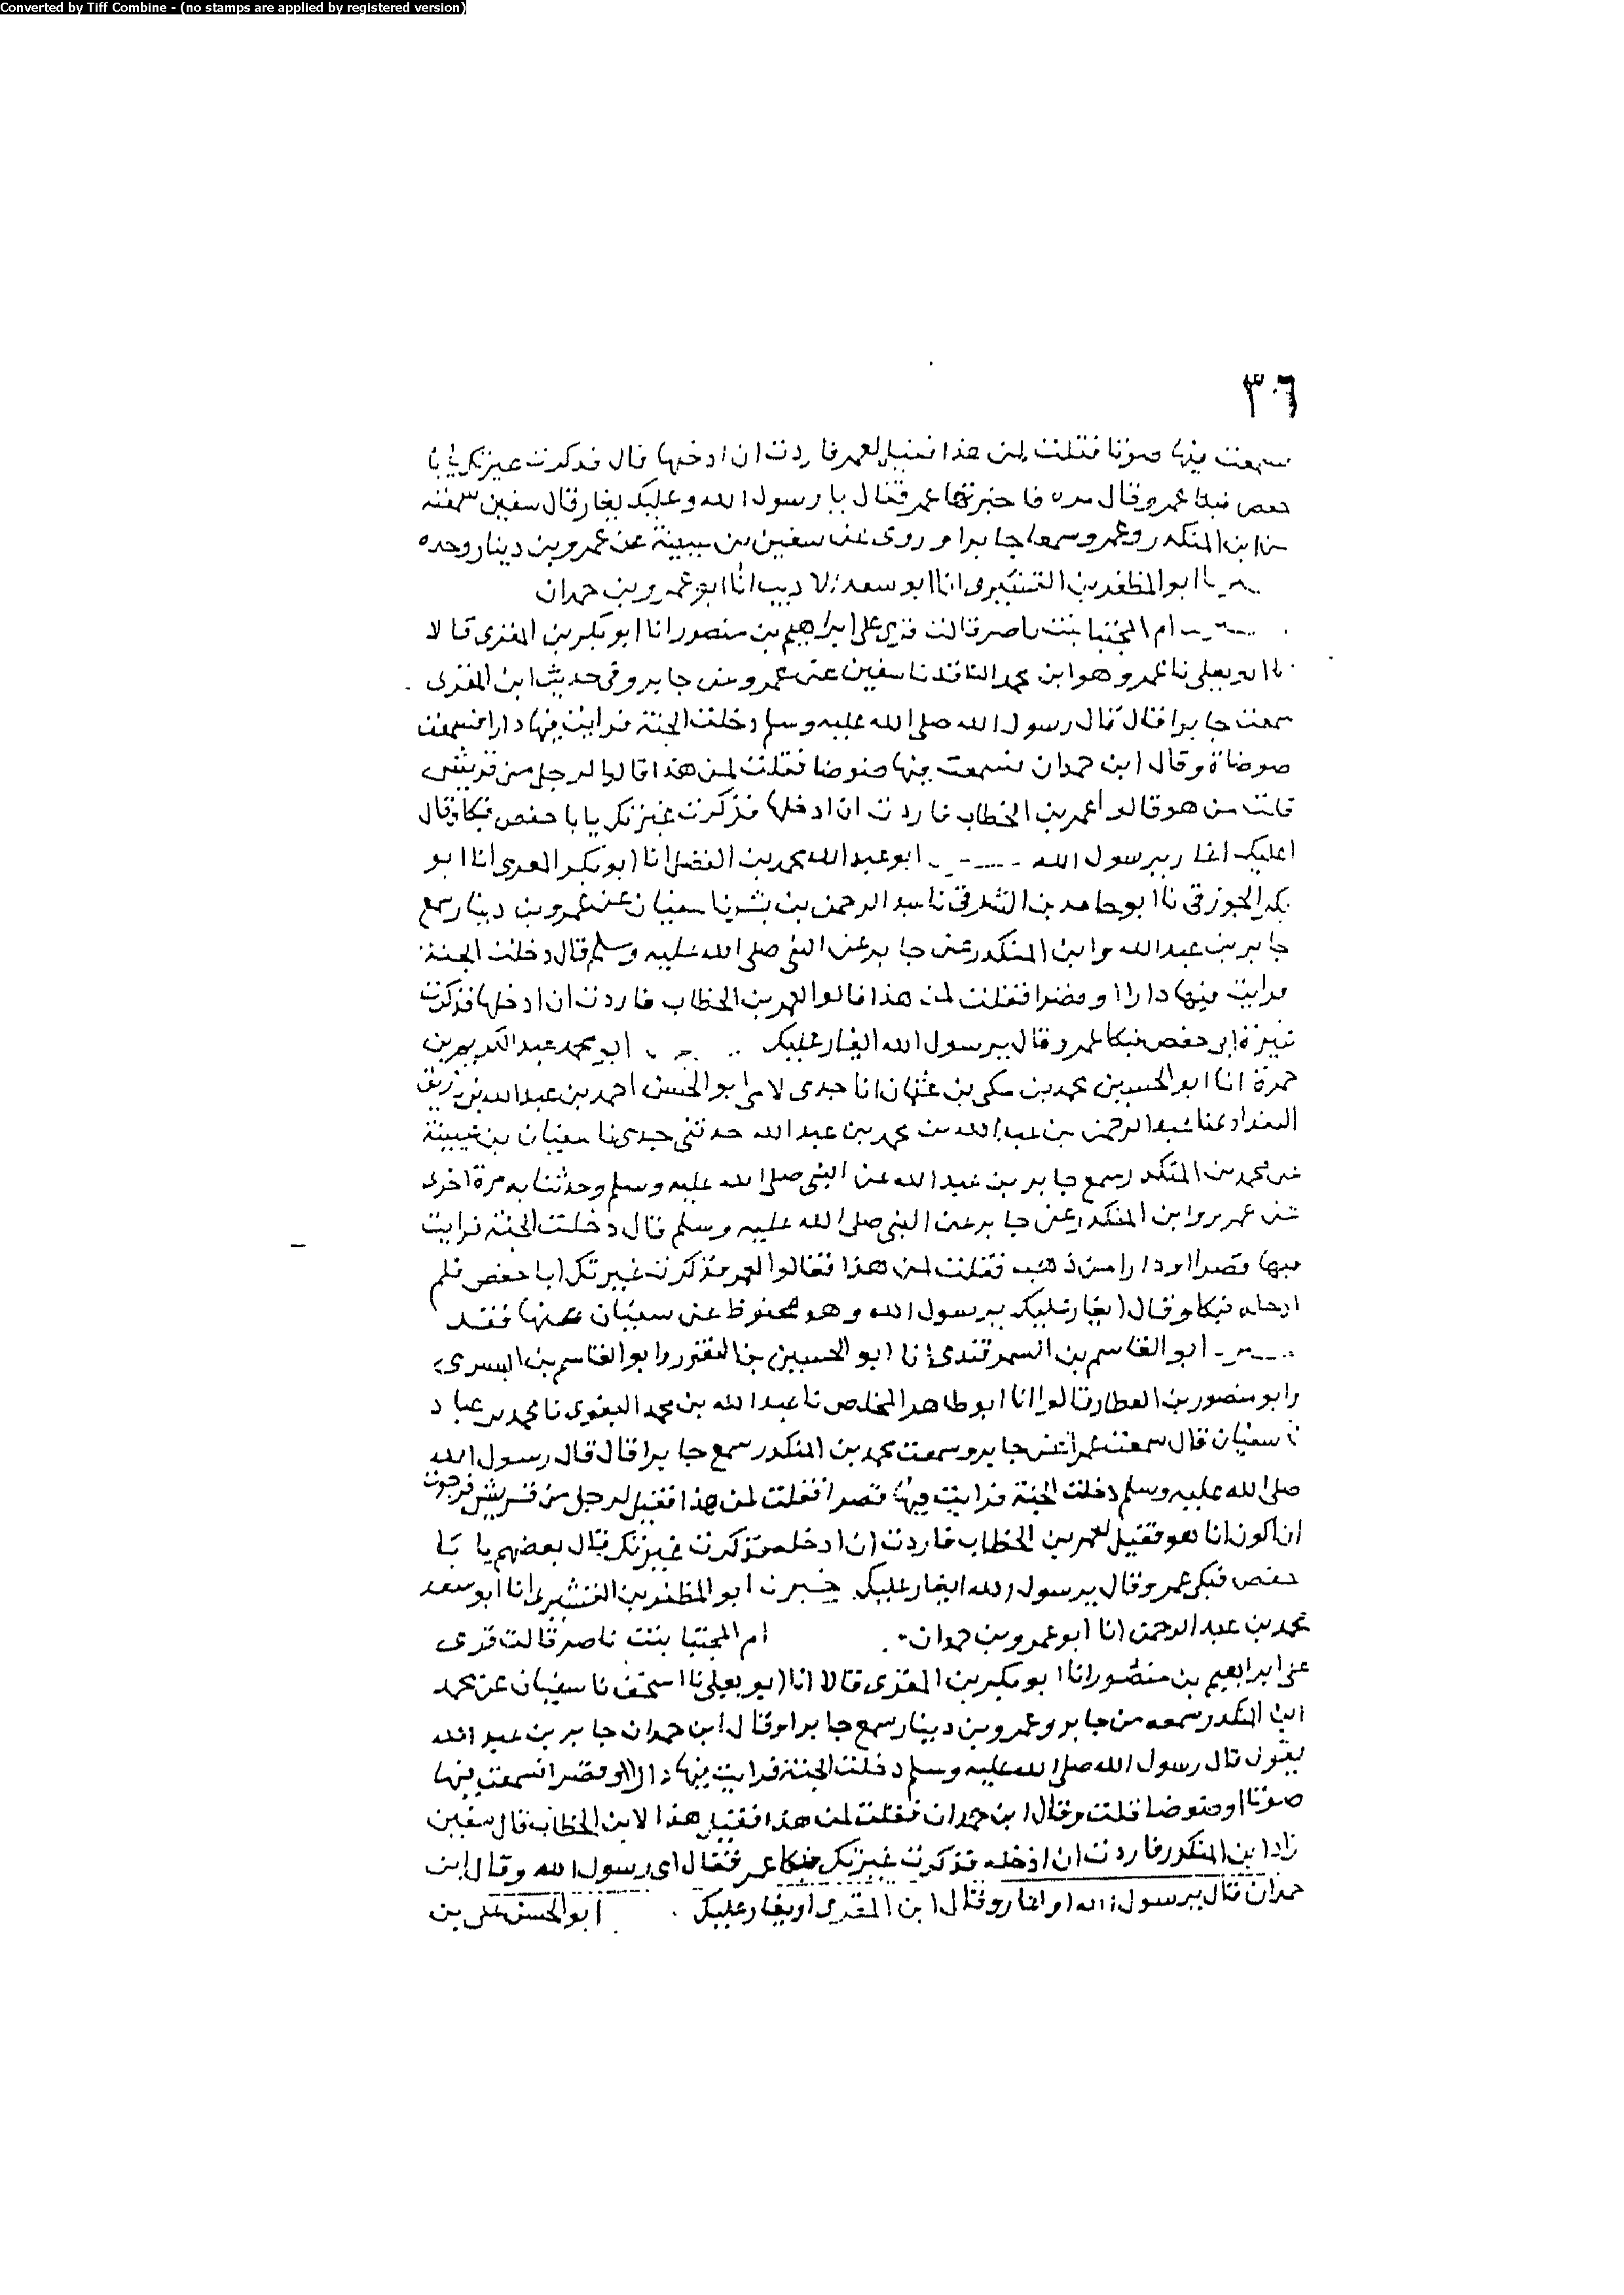 Converted by Tiff Combine - (no stamps are applied by registered version)
٣٠٦
سمعت فيها صوتا فقلت لمن هذا فقيل لعمر فاردت ان ادخلها قال فذكرت غيرتك يابا
حفص فبكا عمرو وقال مره فاخبرتها عمر فقال يا رسول الله وعليك يغار قال سفين سمعته
من ابن المنكدر وعمرو سمعا جابرا وروى عن سفين بن عيينة عن عمرو بن دينار وحده
ابو المظفر بن القشيرى انا ابو سعد الاديب انا ابو عمرو بن حمدان
ام المجتبا بنت ناصر قالت قرى على ابراهيم بن منصور انا ابو بكر بن المقرى قالا
نا ابو يعلى نا عمرو وهو ابن محمد الناقد نا سفين عن عمرو عن جابر وفى حديث ابن المقرى
سمعت جابرا قال قال رسول الله صلى الله عليه وسلم دخلت الجنة فرايت فيها دارا فسمعت
ضوضاة وقال ابن حمدان فسمعت فيها ضوضا فقلت لمن هذا قالوا لرجل من قريش
قلت من هو قالوا عمر بن الخطاب فاردت ان ادخلها فذكرت غيرتك يا با حفص فبكا وقال
اعليك اغار يرسول الله ابو عبد الله محمد بن الفضل انا ابو بكر العمرى انا ابو
بكر الجوزقى نا ابو حامد بن الشرقى نا عبد الرحمن بن بشر نا سفيان عن عمرو بن دينار سمع
جابر بن عبد الله وابن المنكدر عن جابر عن النبى صلى الله عليه وسلم قال دخلت الجنة
فرايت فيها دارا او قصرا فقلت لمن هذا قالوا لعمر بن الخطاب فاردت ان ادخلها فذكرت
غيرة ابى حفص فبكا عمر وقال يرسول الله ايغار عليك ابو محمد عبد الكريم بن
حمزة انا ابو الحسين محمد بن مكى بن عثمان انا جدى لامى ابو الحسن احمد بن عبد الله بن زريق
البغدادى نا عبد الرحمن بن عبد الله بن محمد بن عبد الله حدثنى جدى نا سفيان بن عيينة
عن محمد بن المنكدر سمع جابر بن عبد الله عن النبى صلى الله عليه وسلم وحدثنا به مرة اخرى
عن عمرو وابن المنكدر عن جابر عن النبى صلى الله عليه وسلم قال دخلت الجنة فرايت
فيها قصرا او دارا من ذهب فقلت لمن هذا فقالوا لعمر فذكرت غيرتك ابا حفص فلم
ادخله فبكا وقال ايغار عليك يرسول الله وهو محفوظ عن سفيان عنها فقد
ابو القاسم بن السمرقندى انا ابو الحسين بن النقور وابو القاسم بن البسرى
وابو منصور بن العطار قالوا انا ابو طاهر المخلص نا عبد الله بن محمد البغوى نا محمد بن عباد
نا سفيان قال سمعت عمرا عن جابر وسمعت محمد بن المنكدر سمع جابرا قال قال رسول الله
صلى الله عليه وسلم دخلت الجنة فرايت فيها قصرا فقلت لمن هذا فقيل لرجل من قريش فرجوت
ان اكون انا هو فقيل لعمر بن الخطاب فاردت ان ادخله فذكرت غيرتك فقال بعضهم يا با
حفص فبكى عمر وقال يرسول الله ايغار عليك ابو المظفر بن القشيرى انا ابو سعد
محمد بن عبد الرحمن انا ابو عمرو بن حمدان ام المجتبا بنت ناصر قالت قرى
على ابراهيم بن منصور انا ابو بكر بن المقرى قالا انا ابو يعلى نا اسحق نا سفيان عن محمد
ابن المنكدر سمعه من جابر وعمرو بن دينار سمع جابرا وقال ابن حمدان جابر بن عبد الله
يقول قال رسول الله صلى الله عليه وسلم دخلت الجنة فرايت فيها دارا او قصرا فسمعت فيها
صوتا او ضوضا قلت وقال ابن حمدان فقلت لمن هذا فقيل هذا لابن الخطاب قال سفين
زاد ابن المنكدر فاردت ان ادخله فذكرت غيرتك فبكا عمر فقال اى رسول الله وقال ابن
حمدان قال يرسول الله او اغار وقال ابن المقرى او يغار عليك ابو الحسن على بن